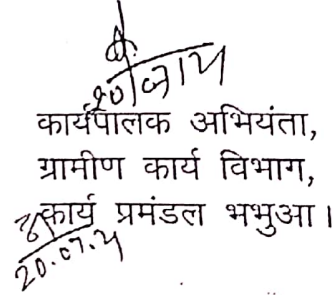 कार्यपालक अभियंता,
ग्रामीण कार्य विभाग,
कार्य प्रमंडल भभुआ।
20.07.24